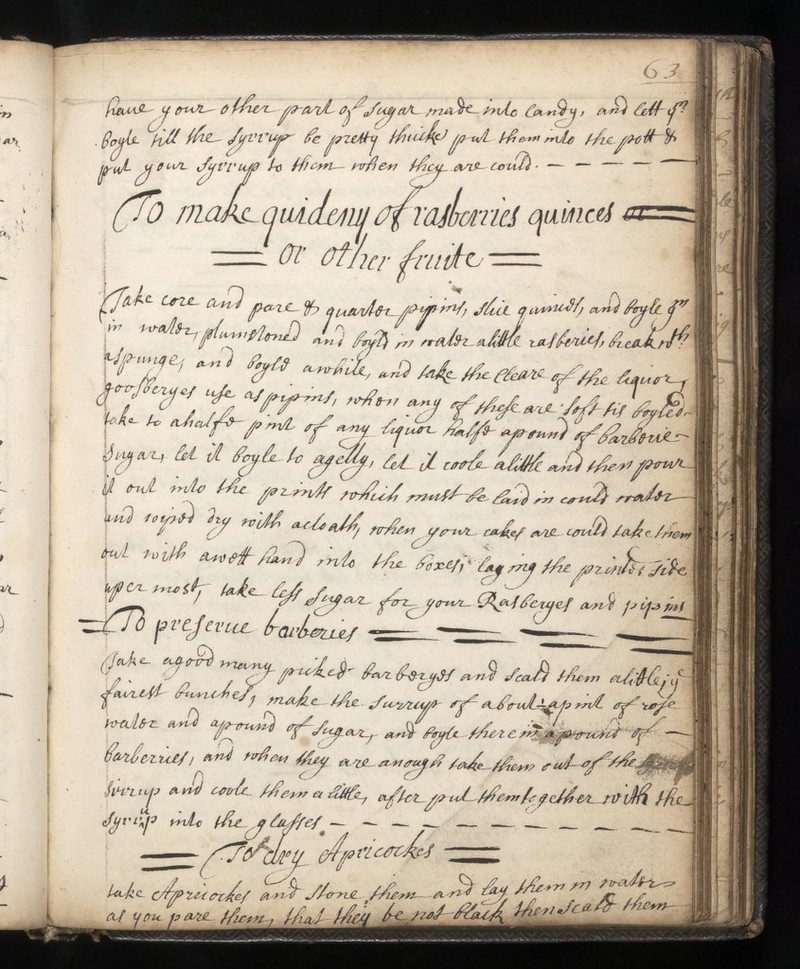 63
haue your other part of sugar made into Candy, and lett ym
boyle till the syrrup be pretty thicke put them into the pott &
put your syrrup to them when they are could - - - - -
To make quideny of rasberries quinces or
or other fruite
Take core and pare & quarter pipins, slice quinces, and boyle ym
in water, plumstoned and boyld in water alittle rasberies, break wth
aspunge, and boyle awhile, and take the Cleare of the liquor,
goosberyes use as pipins, when any of these are soft tis boyled
take to ahalfe pint of any liquor halfe apound of barberie
sugar, let it boyle to agelly, let it coole alittle and then powr
it out into the prints which must be laid in could water
and wiped dry with acloath, when your cakes are could take them
out with awett hand into the boxes, laying the printed side
uper most, take less sugar for your Rasberyes and pipins
To preserue barberies
Take agood many picked barberyes and scald them alitle, ye
fairest bunches, make the surrup of about apint of rose
water and apound of sugar, and boyle therein apound of -
barberries, and when they are anough take them out of the
sirrup and coole them a little, after put them together with the
syrrup into the glasses - - - - - - - - -
To dry Apricockes
take Apricockes and stone them and lay them in water
as you pare them, that they be not black then scald them